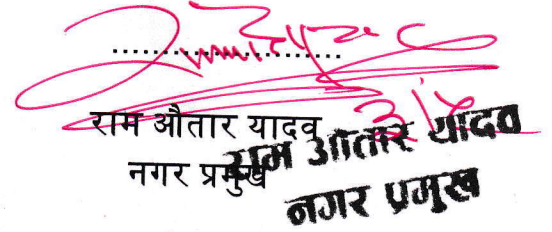 ....................
राम औतार यादव
नगर प्रमुख
राम औतार यादव
नगर प्रमुख